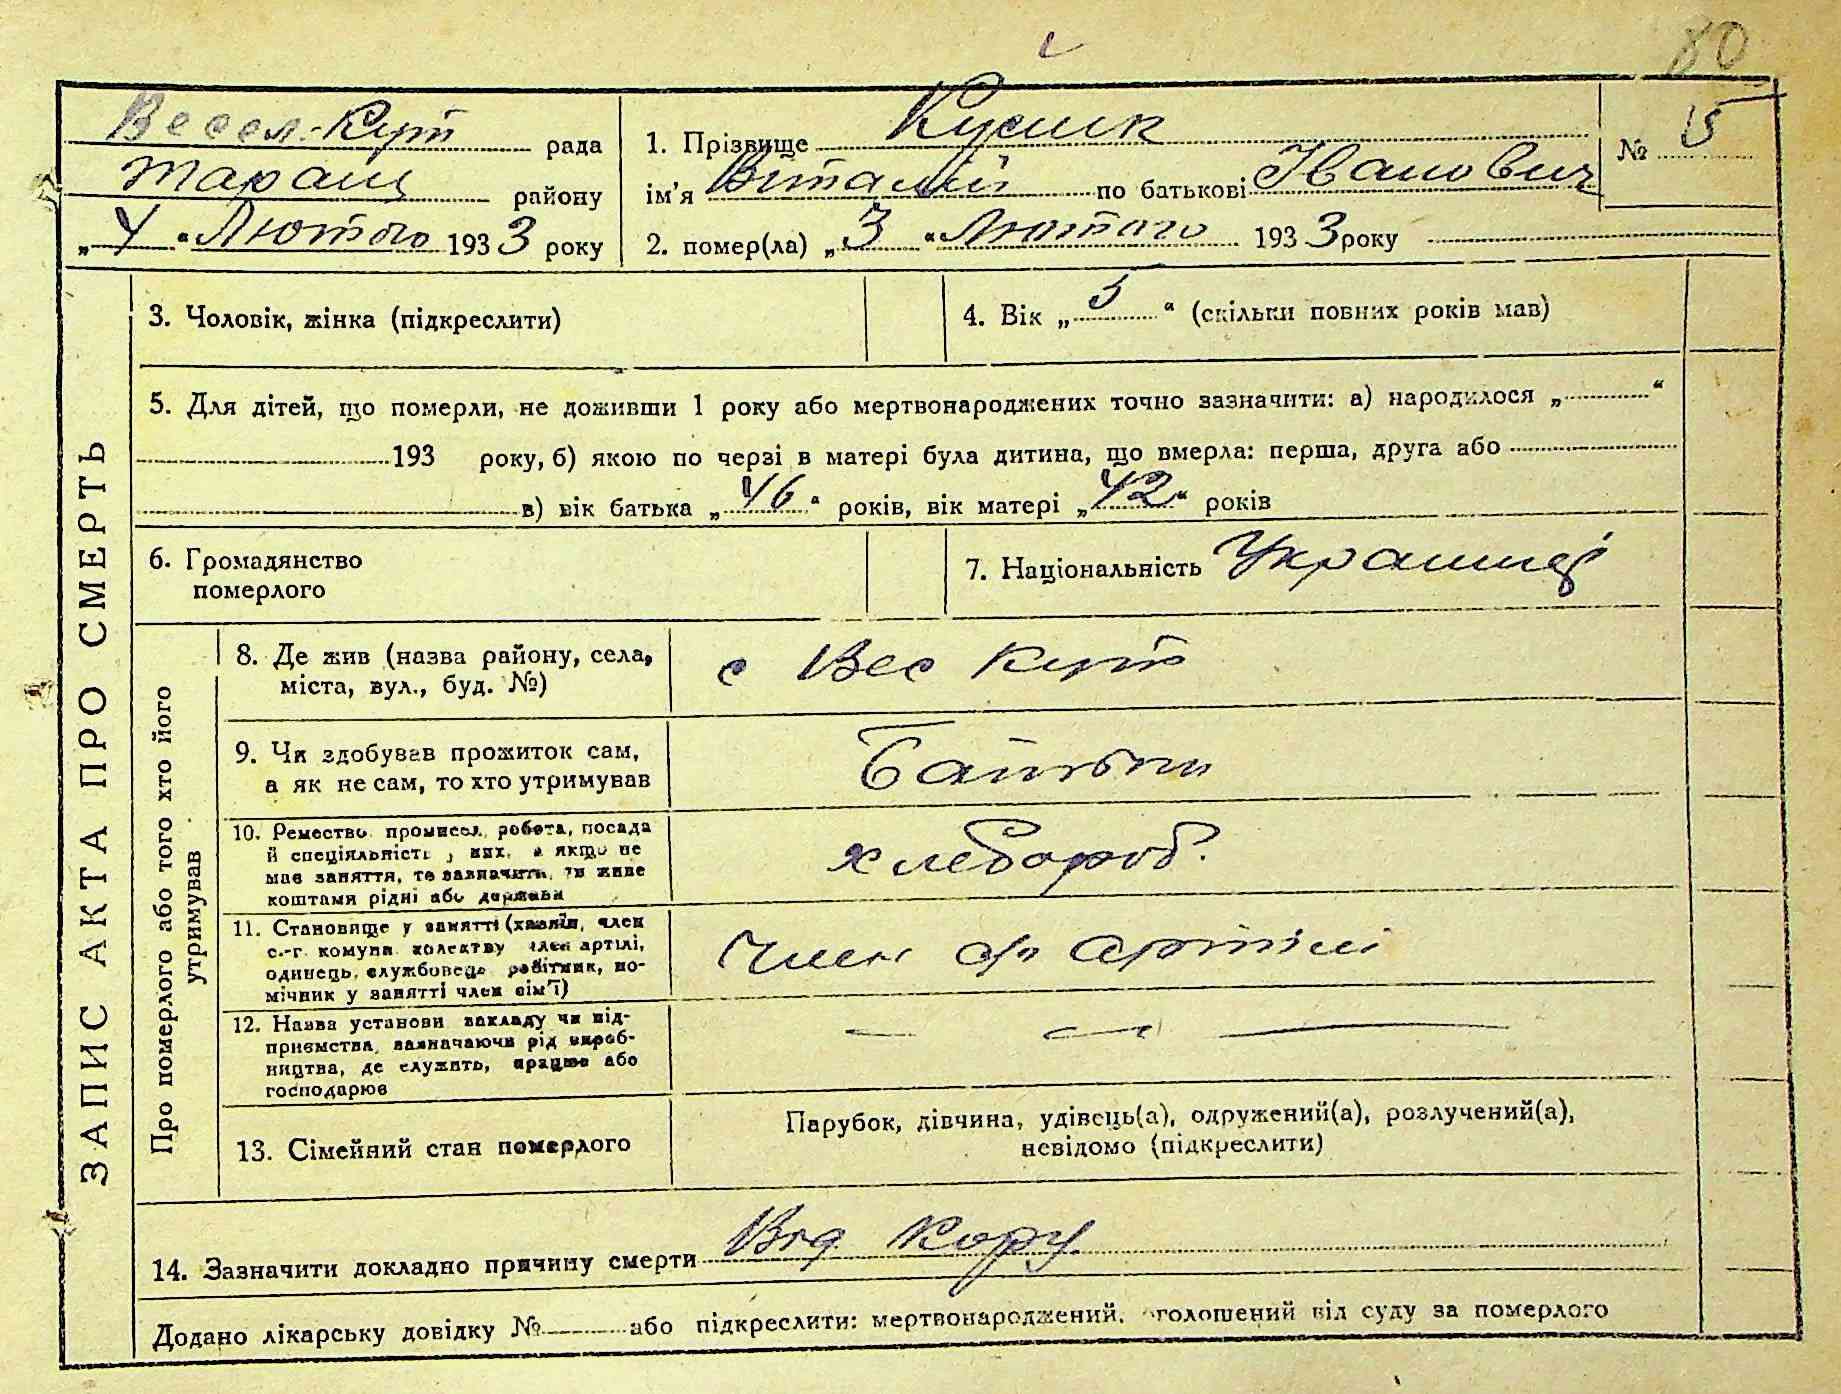 80
Весел-Кут рада
Таращ району
„4“ Лютого 1933 року
1. Прізвище Кусик
ім'я Віталій по батькові Іванович
2. помер(ла) „3“ Лютого 1933 року
№ 15
ЗАПИС АКТА ПРО СМЕРТЬ
3. Чоловік, жінка (підкреслити)
4. Вік „3“ (скільки повних років мав)
5. Для дітей, що померли, не доживши 1 року або мертвонароджених точно зазначити: а) народилося „ “
193 року, б) якою по черзі в матері була дитина, що вмерла: перша, друга або
в) вік батька „46“ років, вік матері „42“ років
6. Громадянство
померлого
7. Національність Українці
Про померлого або того хто його
утримував
8. Де жив (назва району, села,
міста, вул., буд. №)
с Вес Кут
9. Чи здобував прожиток сам,
а як не сам, то хто утримував
Батьки
10. Ремество промисел, робота, посада
й спеціяльність у них, а якщо не
має заняття, то зазначити, чи живе
коштами рідні або держави
хлебороб.
11. Становище у занятті (хазяїн, член
с.-г. комуни колективу член артілі,
одинець, службовець робітник, по-
мічник у занятті член сім'ї)
Член с/г артілі
12. Назва установи закладу чи під-
приємства, зазначаючи рід вироб-
ництва, де служить, працює або
господарює
13. Сімейний стан померлого
Парубок, дівчина, удівець(а), одружений(а), розлучений(а),
невідомо (підкреслити)
14. Зазначити докладно причину смерти Від Кору
Додано лікарську довідку № або підкреслити: мертвонароджений, оголошений від суду за померлого